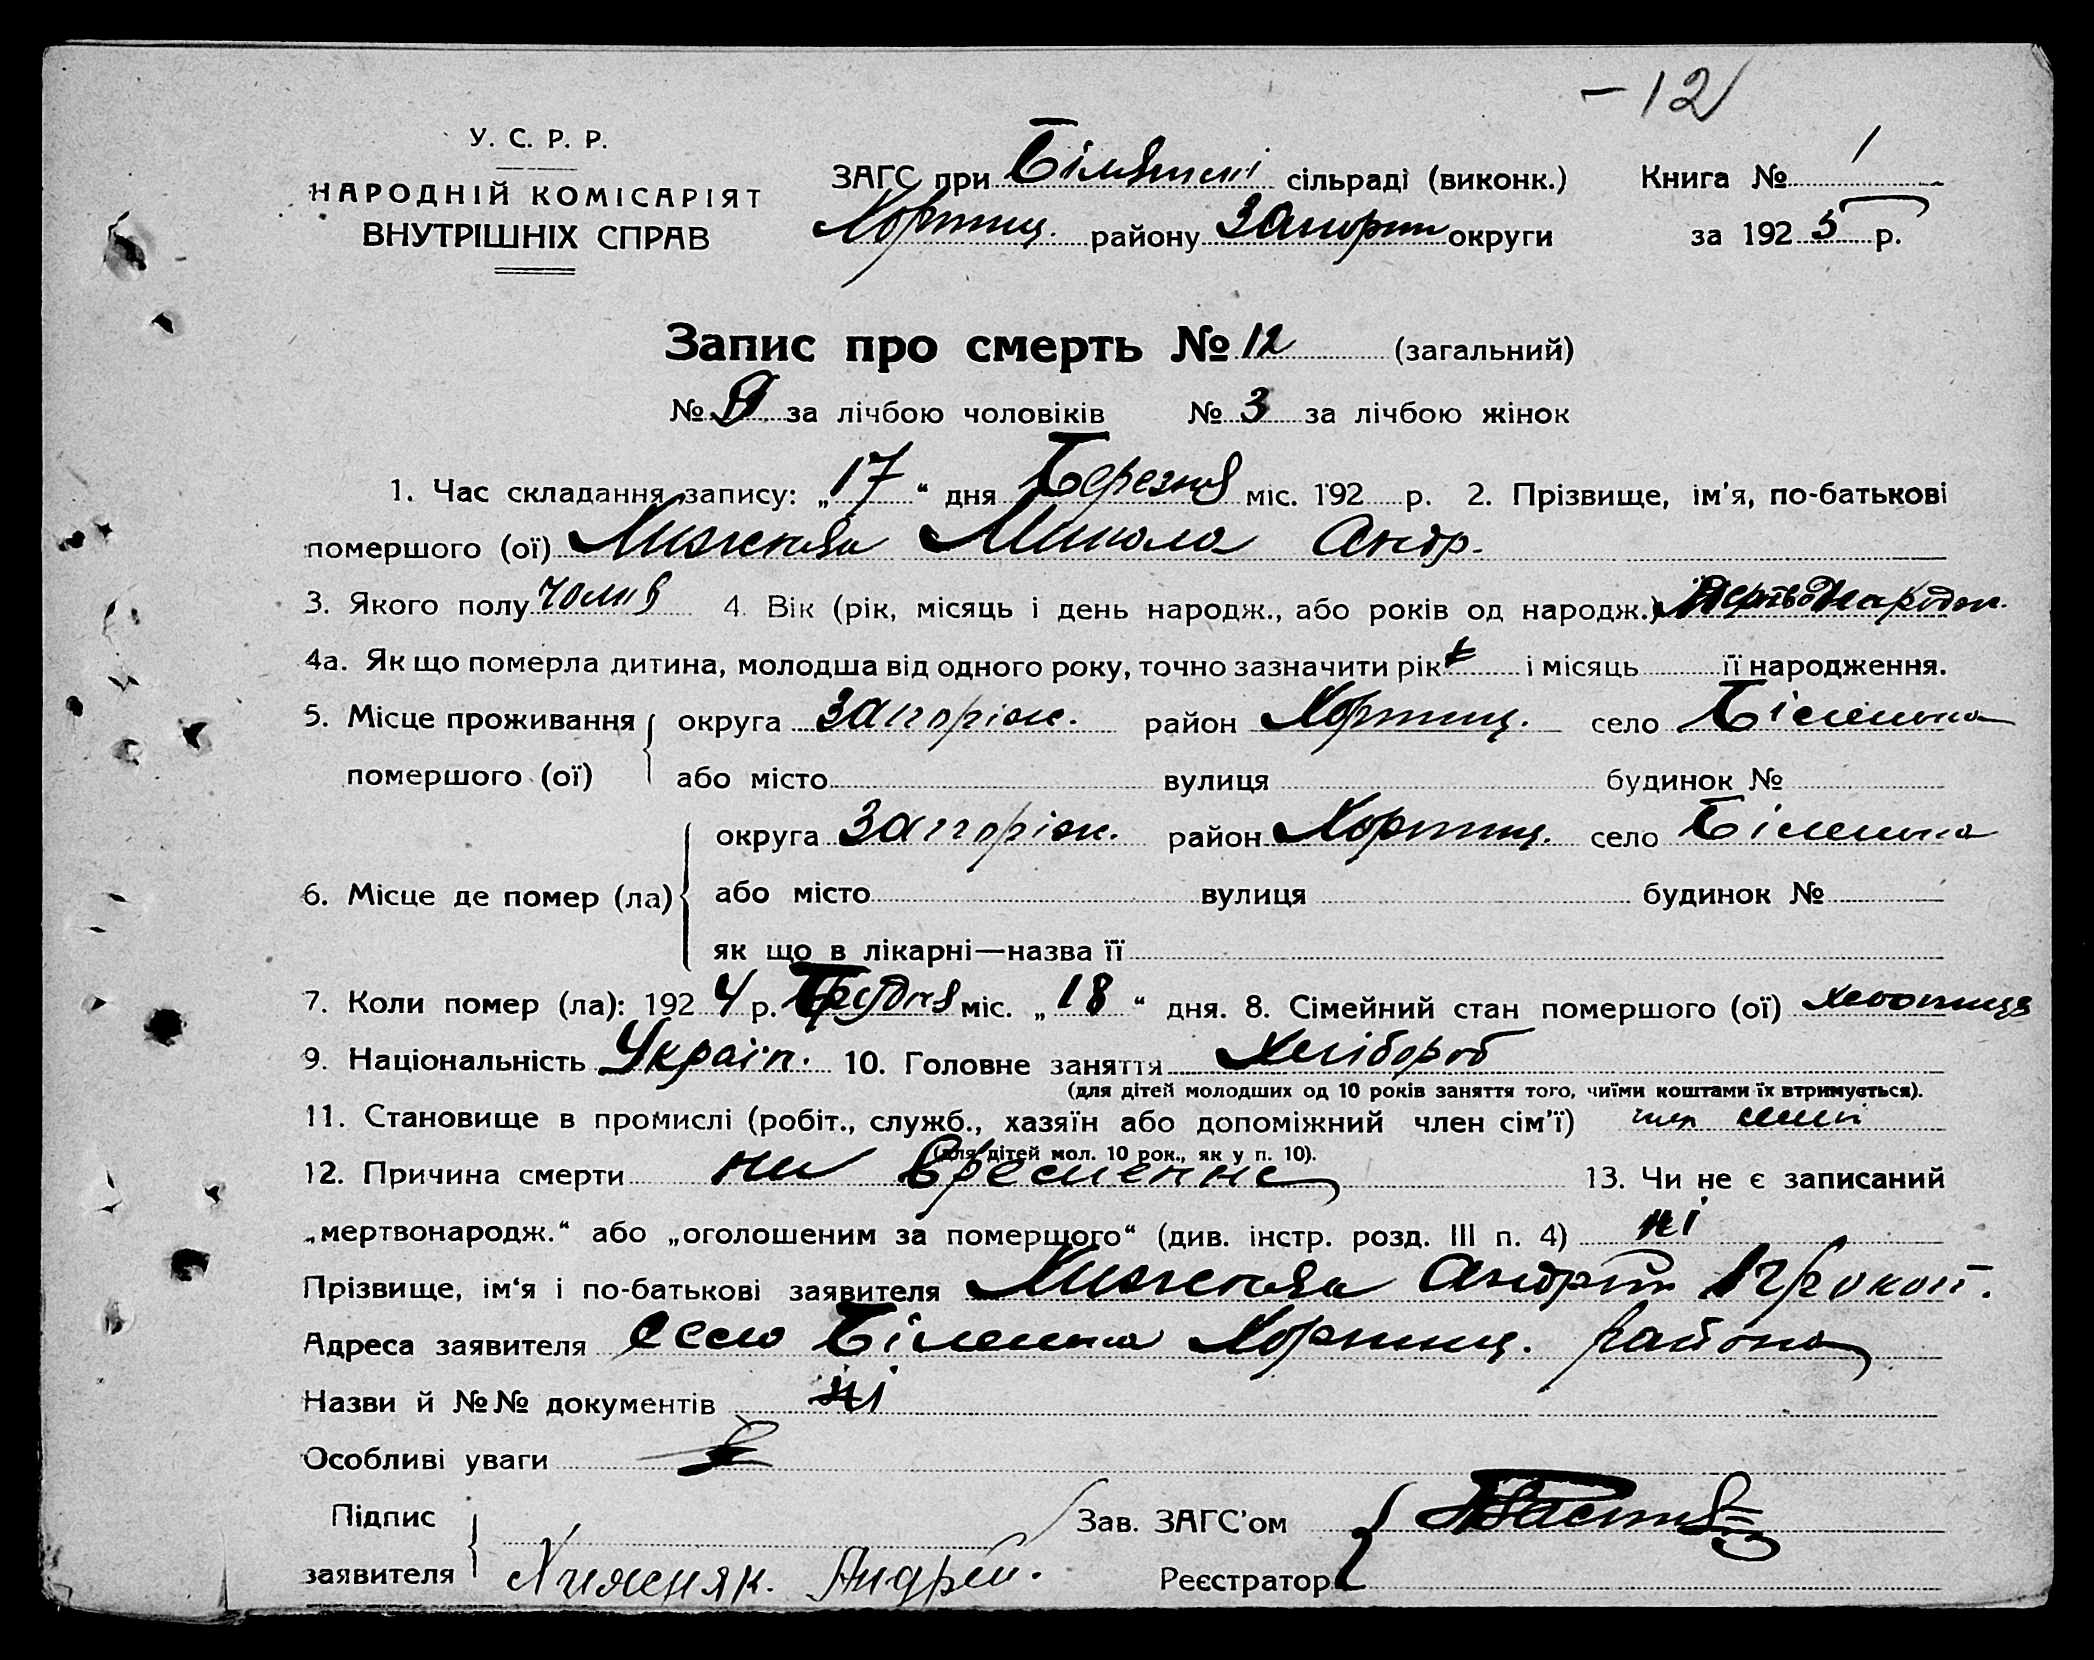 - 12
У. С. Р. Р.
НАРОДНІЙ КОМІСАРІЯТ
ВНУТРІШНІХ СПРАВ
ЗАГС при сільраді (виконк.)
Хортиц. району Запоріж округи
Книга № 1
за 1925 р.
Запис про смерть № 12 (загальний)
№ 9 за лічбою чоловіків № 3 за лічбою жінок
1. Час складання запису: „17“ дня Березня міс. 192 р. 2. Прізвище, ім'я, по-батькові
помершого (ої) Хиженяк Микола Андр.
3. Якого полу чолив 4. Вік (рік, місяць і день народж., або років од народж.) Мертвонародж.
4а. Як що померла дитина, молодша від одного року, точно зазначити рік і місяць її народження.
5. Місце проживання округа Запоріж. район Хортиц. село Біленька
помершого (ої) або місто вулиця будинок №
округа Запоріж. район Хортиц. село Біленька
6. Місце де помер (ла) або місто вулиця будинок №
як що в лікарні—назва її
7. Коли помер (ла): 1924 р. Грудня міс. „18“ дня. 8. Сімейний стан помершого (ої)
9. Національність Україн. 10. Головне заняття Хлібороб
(для дітей молодших од 10 років заняття того, чиїми коштами їх втримується).
11. Становище в промислі (робіт., служб., хазяїн або допоміжний член сім'ї) член сим'ї
(для дітей мол. 10 рок., як у п. 10).
12. Причина смерти не временне 13. Чи не є записаний
„мертвонародж.“ або „оголошеним за померщого“ (див. інстр. розд. III п. 4) ні
Прізвище, ім'я і по-батькові заявителя Хиженяк Андрій Прокоп.
Адреса заявителя Село Біленька Хортиц. района
Назви й №№ документів ні
Особливі уваги
Підпис Зав. ЗАГС'ом
заявителя Хиженяк. Андрей. Реєстратор